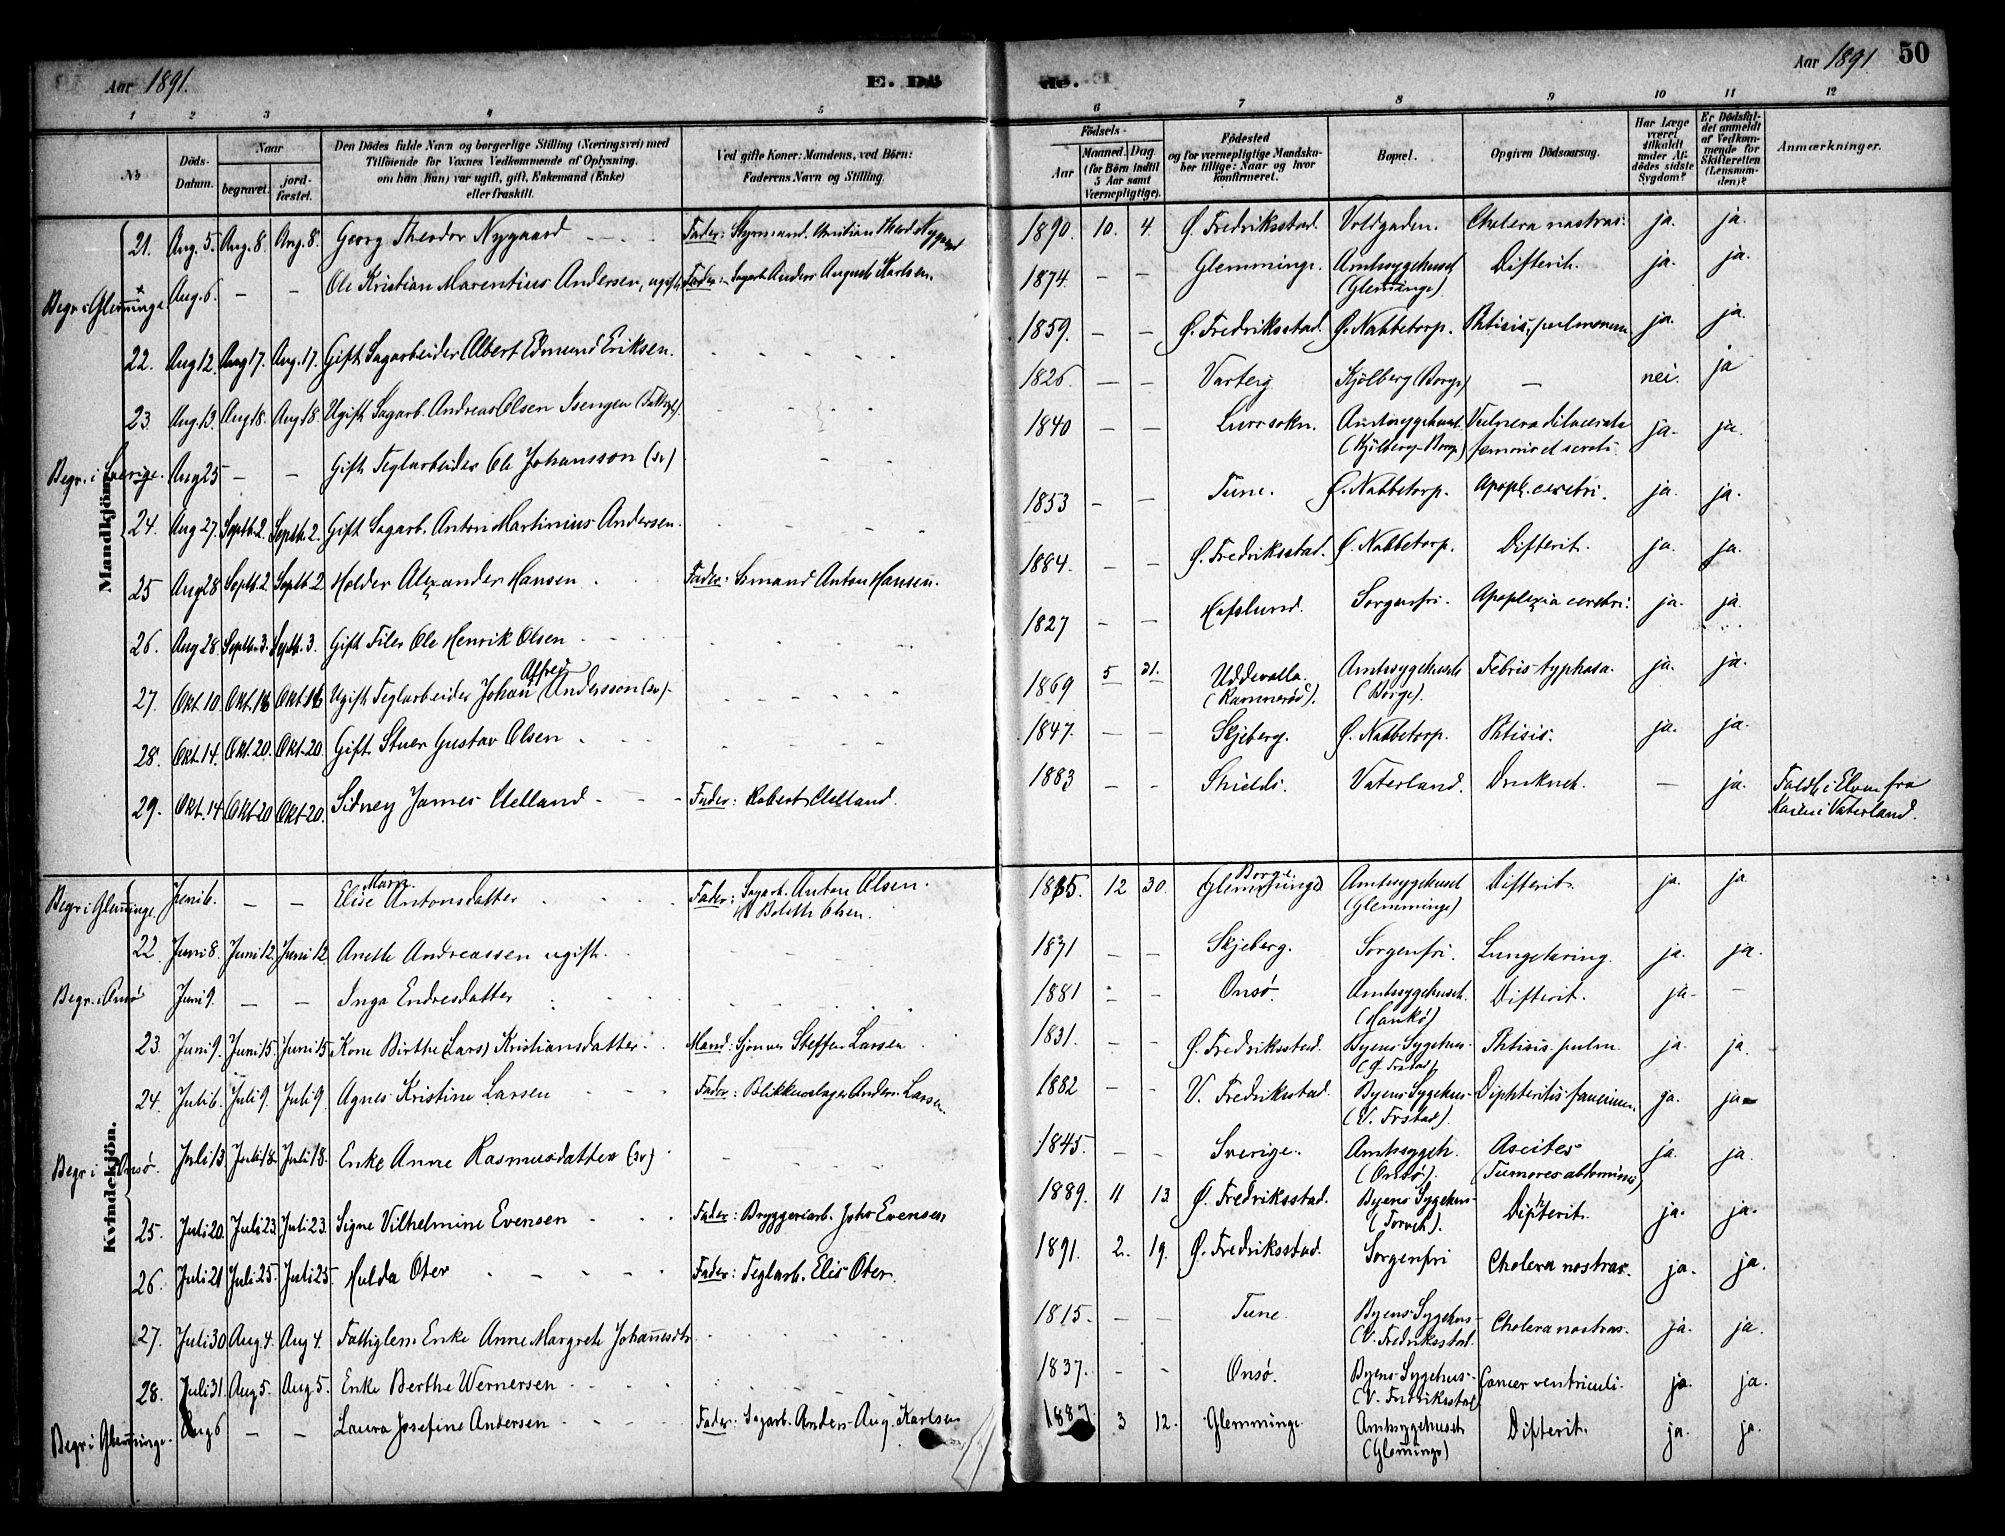 Aar 1891. E. Dö
de. Aar 1891 50
1 2 3 4 5 6 7 8 9 10 11 12
№ Döds-Datum. Naar begravet. jord-fæstet. Den Dödes fulde Navn og borgerlige Stilling (Næringsvei) med Tilföiende for Voxnes Vedkommende af Oplysning, om han (hun) var ugift, gift, Enkemand (Enke) eller fraskilt. Ved gifte Koner: Mandens, ved Börn: Faderens Navn og Stilling. Födsels- Aar Maaned. Dag (for Börn indtil 5 Aar samt Værnepligtige). Födested og for værnepligtige Mandskaber tillige: Naar og hvor konfirmeret. Bopæl. Opgiven Dödsaarsag. Har Læge været tilkaldt under Afdödes sidste Sygdom? Er Dödsfaldet anmeldt af Vedkommende for Skifteretten (Lensmanden)? Anmærkninger.
Mandkjön.
21. Aug. 5. Aug. 8 Aug. 8. Georg Theodor Nygaard Fader: Styrmand Christian Theod. Nygaard 1890. 10. 4. Ø. Fredriksstad. Voldgaden. Cholera nostras. ja. ja.
Begr. i Glemminge. Aug. 6. – – Ole Kristian Marentius Andersen, ugift Fader: Sagarb. Anders August Karlsen. 1874. – – Glemminge. Amtssygehuset (Glemminge) Difterit. ja. ja.
22. Aug 12. Aug 17. Aug. 17. Gift Sagarbeider Albert Edmund Eriksen. 1859. – – Ø. Fredriksstad. Ø. Nabbetorp. Phtisis pulmonum ja. ja.
23. Aug. 13. Aug 18. Aug 18. Ugift Sagarb. Andreas Olsen 1826. – – Varteig Kjölberg (Borge) – nei. ja
Begr. i Sverige. Aug 25 – – Gift Teglarbeider Ole Johansson (sv) 1840 – – Amtssygehuset (Kjölberg–Borge) Vulnera dilacerata femoris et scroti. ja. ja.
24. Aug 27. Septb. 2. Septb. 2. Gift Sagarb. Anton Martinius Andersen 1853 – – Tune. Ø. Nabbetorp. Apopl. cerebri. ja. ja.
25 Aug 28 Septb. 2 Septb. 2 Holder Alexander Hansen Fader: Sömand Anton Hansen. 1884. – – Ø. Fredriksstad. Ø. Nabbetorp. Difterit. ja. ja.
26. Aug 28. Septb. 3. Septb. 3. Gift Filer Ole Henrik Olsen 1827 – – Hafslund. Sorgenfri. Apoplexia cerebri. ja. ja.
27. Okt. 10 Okt. 16 Okt 16 Ugift Teglarbeider Johan Alfred Andersson (sv) 1869 5 31. Uddevalla. Amtssygehuset (Borge). Febris typhosa. ja. ja.
28. Okt. 14. Okt. 20. Okt. 20 Gift Stuer Gustav Olsen 1847. – – Skjeberg. Ø. Nabbetorp. Phtisis. ja. ja.
29. Okt. 14 Okt 20 Okt. 20. Sidney James Uelland Fader: Robert Uelland. 1883 – – Shields. Vaterland. Druknet. – ja. Faldt i Elven fra Kaien i Vaterland.
Kvindekjön.
Begr. i Glemminge. Juni 6. – – Elise Marie Antonsdatter Fader: Sagarb. Anton Olsen. Boleth Olsen. 1885. 12 30. Glemminge Borge. Amtssygehuset (Glemminge) Difterit. ja. ja
22. Juni 8. Juni 12. Juni 12. Anette Andreassen ugift. 1831 – – Skjeberg. Sorgenfri. Lungetæring. ja. ja.
Begr. i Onsø Juni 9. – – Inga Endresdatter 1881 – – Onsø. Amtssygehuset. (Hankø) Difterit. ja. –
23. Juni 9. Juni 15. Juni 15. Kone Birthe (Lars) Kristiansdatter. Mand: Steffen Larsen 1831. – – Ø. Fredriksstad. Byens Sygehus (Ø. Frstad). Phtisis pulm. ja. ja.
24. Juli 6. Juli 9. Juli 9. Agnes Kristine Larsen Fader: Blikkenslager Anders Larsen 1882 – – V. Fredriksstad. Byens Sygehus (V. Frstad). Diphteritis faucium. ja. ja
Begr. i Onsø. Juli 13 Juli 18. Juli 18. Enke Anne Rasmusdatter (sv) 1845. – – Sverige. Amtssygeh. (Onsø). Ascites (Tumores abdominis) ja. ja.
25. Juli 20. Juli 23. Juli 23. Signe Vilhelmine Evensen Fader: Bryggeriarb. Johs Evensen 1889. 11 13. Ø. Fredriksstad. Byens Sygehus (Torvet). Difterit. ja. ja.
26. Juli 21 Juli 25. Juli 25. Hulda Oter Fader: Teglarb. Elis Oter. 1891. 2. 19. Ø. Fredriksstad. Sorgenfri Cholera nostras. ja. ja.
27. Juli 30 Aug 4. Aug 4. Fattiglem Enke Anne Margrete Johannesdtr. 1815. – – Tune. Byens Sygehus (V. Fredriksstad. Cholera nostras. ja. ja.
28. Juli 31. Aug 5. Aug. 5. Enke Berthe Wernersen 1837. – – Onsø. Byens Sygehus (V. Fredriksstad Cancer ventriculi. ja. ja.
Begr. i Glemminge. Aug 6 – – Laura Josefine Andersen Fader: Sagarb. Anders Aug. Karlsen 1887 3 12. Glemminge Amtssygehuset (Glemminge) Difterit. ja. ja.